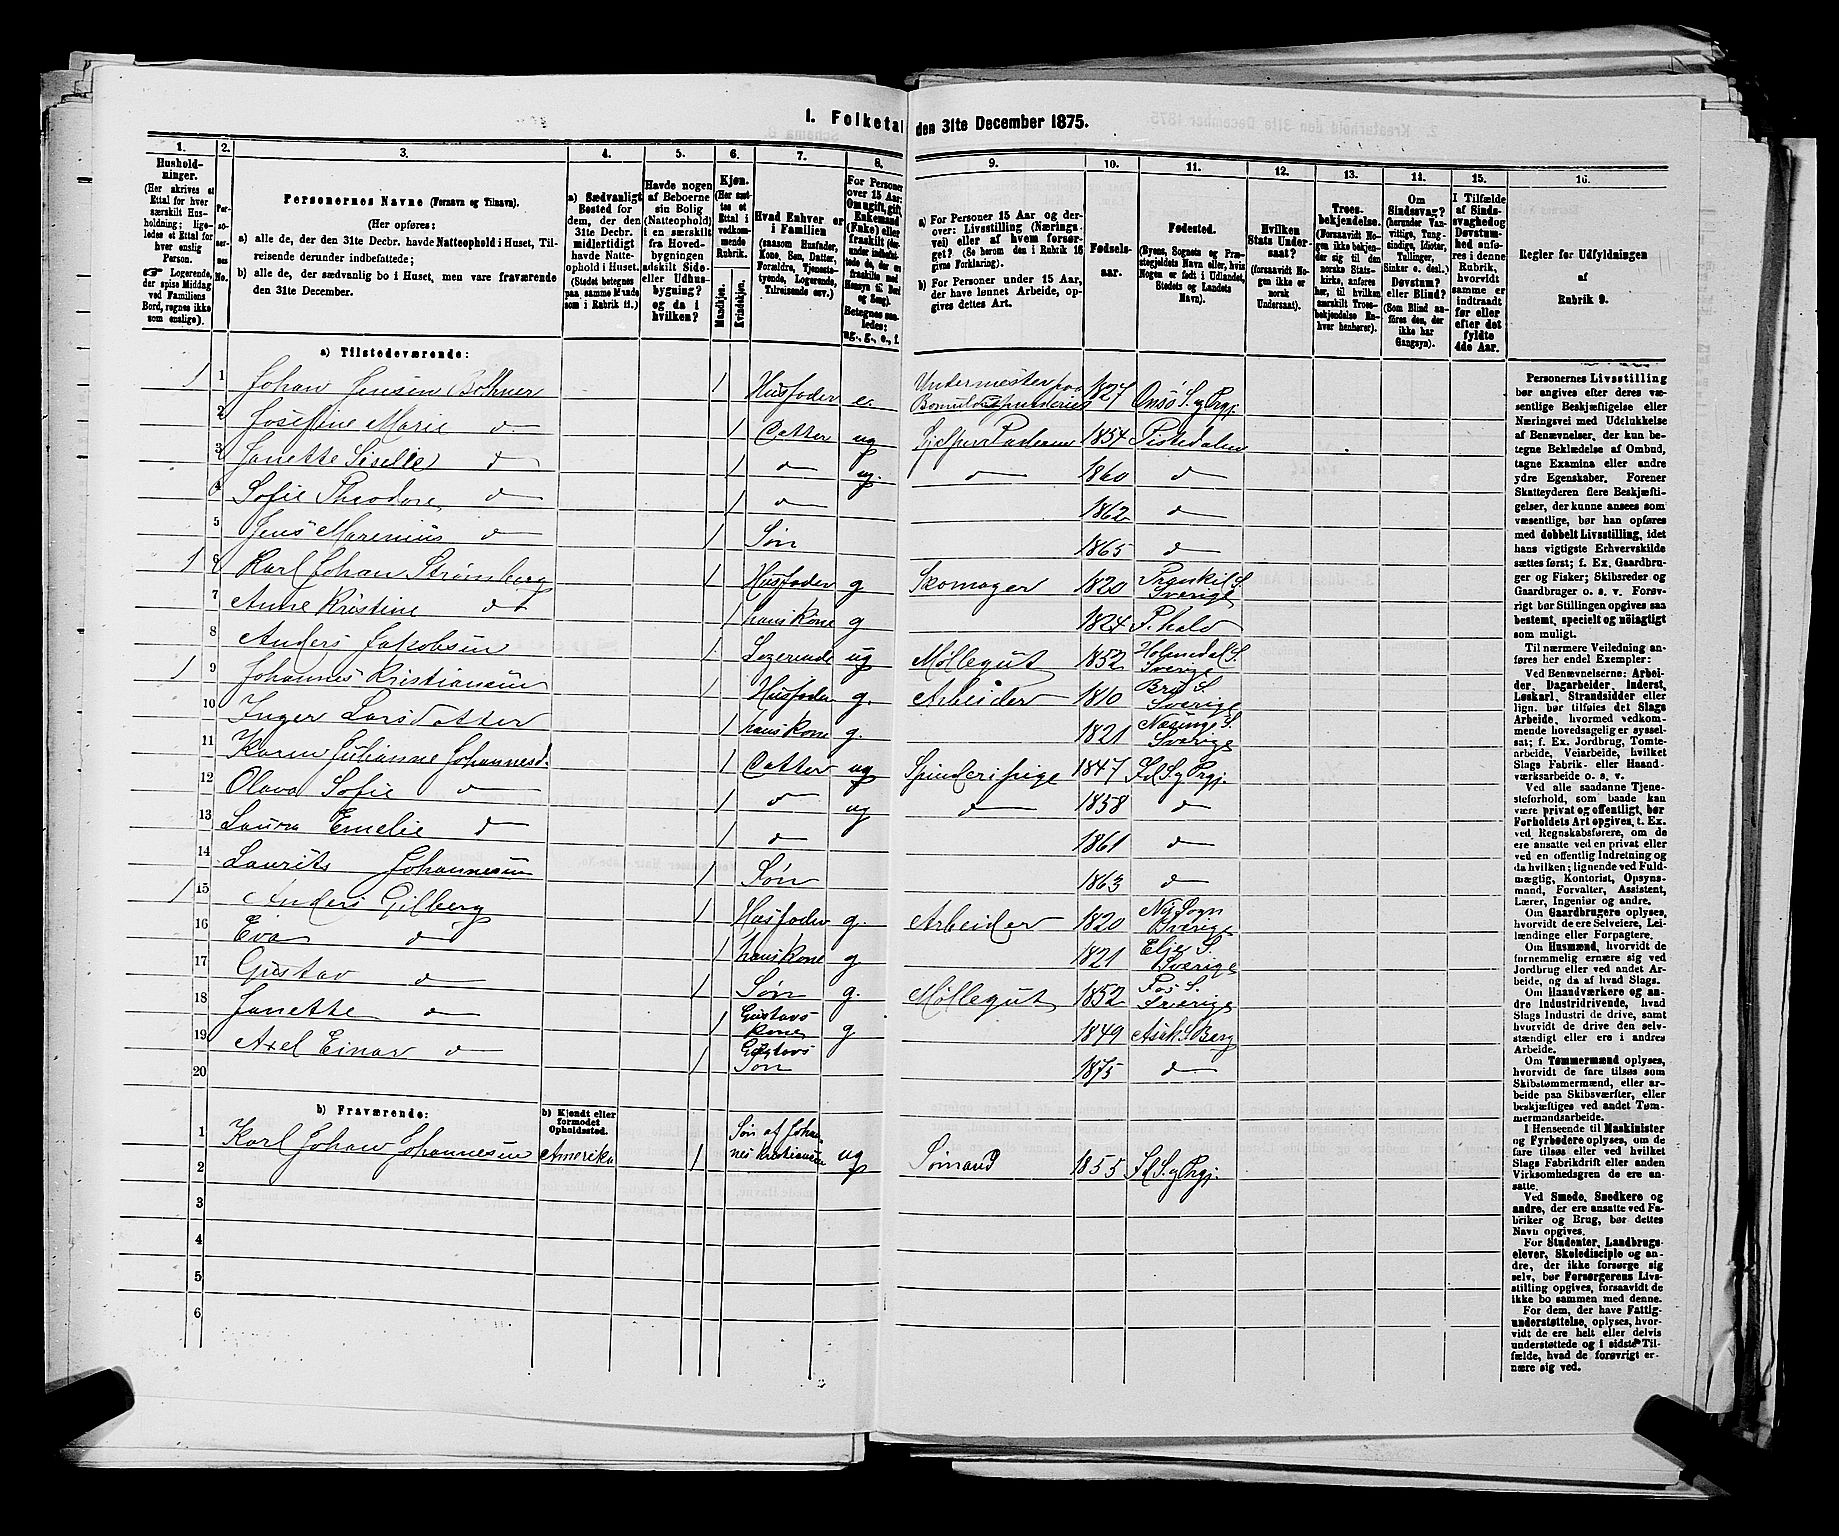 1. Folketal den 31te December 1875.
1. 2. 3. 4. 5. 6. 7. 8. 9. 10. 11. 12. 13. 14. 15. 16.
Husholdninger. (Her skrives et Ettal for hver særskilt Husholdning; ligeledes et Ettal for hver enslig Person. ☞ Logerende, der spise Middag ved Familiens Bord, regnes ikke som enslige).
Personernes No.
Personernes Navne (Fornavn og Tilnavn).
(Her opføres:
a) alle de, der den 31te Decbr. havde Natteophold i Huset, Tilreisende derunder indbefattede;
b) alle de, der sædvanlig bo i Huset, men vare fraværende den 31te December.
a) Sædvanligt Bosted for dem, der den 31te Decbr. midlertidigt havde Natteophold i Huset. (Stedet betegnes paa samme Maade som i Rubrik 11.)
Havde nogen af Beboerne sin Bolig (Natteophold) i en særskilt fra Hovedbygningen adskilt Side- eller Udhusbygning? og da i hvilken?
Kjøn. (Her sættes et Ettal i vedkommende Rubrik.
Mandkjøn. Kvindekjøn.
Hvad Enhver er i Familien (saasom Husfader, Kone, Søn, Datter, Forældre, Tjenestetyende, Logerende, Tilreisende osv.)
For Personer over 15 Aar: Om ugift, gift, Enkemand (Enke) eller fraskilt
Betegnes saaledes: ug., g., e., f.
a) For Personer 15 Aar og derover: Livsstilling (Næringsvei) eller af hvem forsørget? (Se herom den i Rubrik 16 givne Forklaring).
b) For Personer under 15 Aar, der have lønnet Arbeide, opgives dettes Art.
Fødselsaar.
Fødested. (Byens, Sognets og Præstegjeldets Navn eller, hvis Nogen er født i Udlandet, Stedets og Landets Navn).
Hvilken Stats Undersaat? (forsaavidt Nogen ikke er norsk Undersaat).
Troesbekjendelse. (Forsaavidt Nogen ikke bekjender sig til den norske Statskirke, anføres her, til hvilken særskilt Troesbekjendelse Enhver henhører).
Om Sindssvag? (herunder Vanvittige, Tungsindige, Idioter, Tullinger, Sinker o. desl.) Døvstum? eller Blind? (Som Blind anføres den, der ikke har Gangsyn).
I Tilfælde af Sindssvaghed og Døvstumhed anføres i denne Rubrik, hvorvidt samme er indtraadt før eller efter det fyldte 4de Aar.
Regler for Udfyldningen af Rubrik 9.
a) Tilstedeværende:
1 1 Johan Jensen Bothner 1 Husfader e. Undermester paa Bomuldsspinderiet 1827 Onsø S. og Prgj.
2 Josefine Marie d 1 Datter ug 1854 Tistedalen
3 Janette Giselle d 1 d ug. d 1860 d
4 Sofie Theodore d 1 d 1862 d
5 Jens Marenius d 1 Søn 1865 d
1 6 Karl Johan Strømberg 1 Husfader g Skomager 1820 Trankil S. Sverige
7 Anne Kristine d 1 hans Kone g 1824 F.hald
8 Anders Jakobsen 1 Logerende ug Møllegut 1852 Holmedal S. Sverige
1 9 Johannes Kristiansen 1 Husfader g. Arbeider 1810 Bro S. Sverige
10 Inger Larsdatter 1 hans Kone g. 1821 Næsinge S. Sverige
11 Karen Julianne Johannesd. 1 Datter ug Spinderipige 1847 Id S. og Prgj.
12 Olava Sofie d 1 d ug d 1858 d
13 Laura Emelie d 1 d 1861 d
14 Laurits Johannesen 1 Søn 1863 d
1 15 Anders Gilberg 1 Husfader g. Arbeider 1820 Ny Sogn Sverige
16 Eva d 1 hans Kone g 1821 Sverige
17 Gustav d 1 Søn g. Møllegut 1852 Fos S. Sverige
18 Janette d 1 Gustavs Kone g 1849 Asak S. Berg
19 Axel Einar d 1 Gustavs Søn 1875 d
20
b) Fraværende: b) Kjendt eller formodet Opholdssted.
1 Karl Johan Johannesen Amerika 1 Søn af Johannes Kristiansen ug Sømand 1855 Id S. og Prgj.
2
3
4
5
6
Personernes Livsstilling
bør angives efter deres væ-
sentlige Beskjæftigelse eller
Næringsvei med Udelukkelse
af Benævnelser, der kun be-
tegne Beklædelse af Ombud,
tagne Examina eller andre
ydre Egenskaber. Forener
Skatteyderen flere Beskjæfti-
gelser, der kunne ansees som
væsentlige, bør han opføres
med dobbelt Livsstilling, idet
hans vigtigste Erhvervskilde
sættes først; f. Ex. Gaardbru-
ger og Fisker; Skibsreder og
Gaardbruger o. s. v. Forøv-
rigt bør Stillingen opgives saa
bestemt, specielt og nøiagtigt
som muligt.
Til nærmere Veiledning an-
føres her endel Exempler:
Ved Benævnelserne: Arbei-
der, Dagarbeider, Inderst,
Løskarl, Strandsidder eller
lign. bør tilføies det Slags
Arbeide, hvormed vedkom-
mende hovedsagelig er syssel-
sat; f. Ex. Jordbrug, Tomte-
arbeide, Veiarbeide, hvilket
Slags Fabrik- eller Haand-
værksarbeide o. s. v.
Ved alle saadanne Tjene-
steforhold, som baade kan
være privat og offentligt, bør
Forholdets Art opgives, t. Ex.
ved Regnskabsførere, om de
ere ansatte ved en privat eller
ved en offentlig Indretning og
da hvilken; lignende ved Fuld-
mægtig, Kontorist, Opsyns-
mand, Forvalter, Assistent,
Lærer, Ingeniør og andre.
Om Gaardbrugere oplyses,
hvorvidt de ere Selveiere, Lei-
lændinge eller Forpagtere.
Om Husmænd, hvorvidt de
fornemmelig ernære sig ved
Jordbrug eller ved andet Ar-
beide, og da af hvad Slags.
Om Haandværkere og an-
dre Industridrivende, hvad
Slags Industri de drive, samt
hvorvidt de drive den selv-
stændigt eller ere i andres
Arbeide.
Om Tømmermænd oplyses,
hvorvidt de fare tilsøs som
Skibstømmermænd, eller ar-
beide paa Skibsværfter, eller
beskjæftiges ved andet Tøm-
mermandsarbeide.
I Henseende til Maskinister
og Fyrbødere oplyses, om de
fare tilsøs eller ved hvilket
Slags Fabrikdrift eller anden
Virksomhedsgren de ere an-
satte.
Ved Smede, Snedkere og
andre, der ere ansatte ved Fa-
briker og Brug, bør dettes
Navn opgives.
For Studenter, Landbrugs-
elever, Skoledisciple og an-
dre, der ikke forsørge sig
selv, bør Forsørgerens Livs-
stilling opgives, forsaavidt de
ikke bo sammen med denne.
For dem, der have Fattig-
understøttelse, oplyses, hvor-
vidt de ere helt eller delvis
understøttede og i sidste Til-
fælde, hvad de forøvrigt er-
nære sig ved.